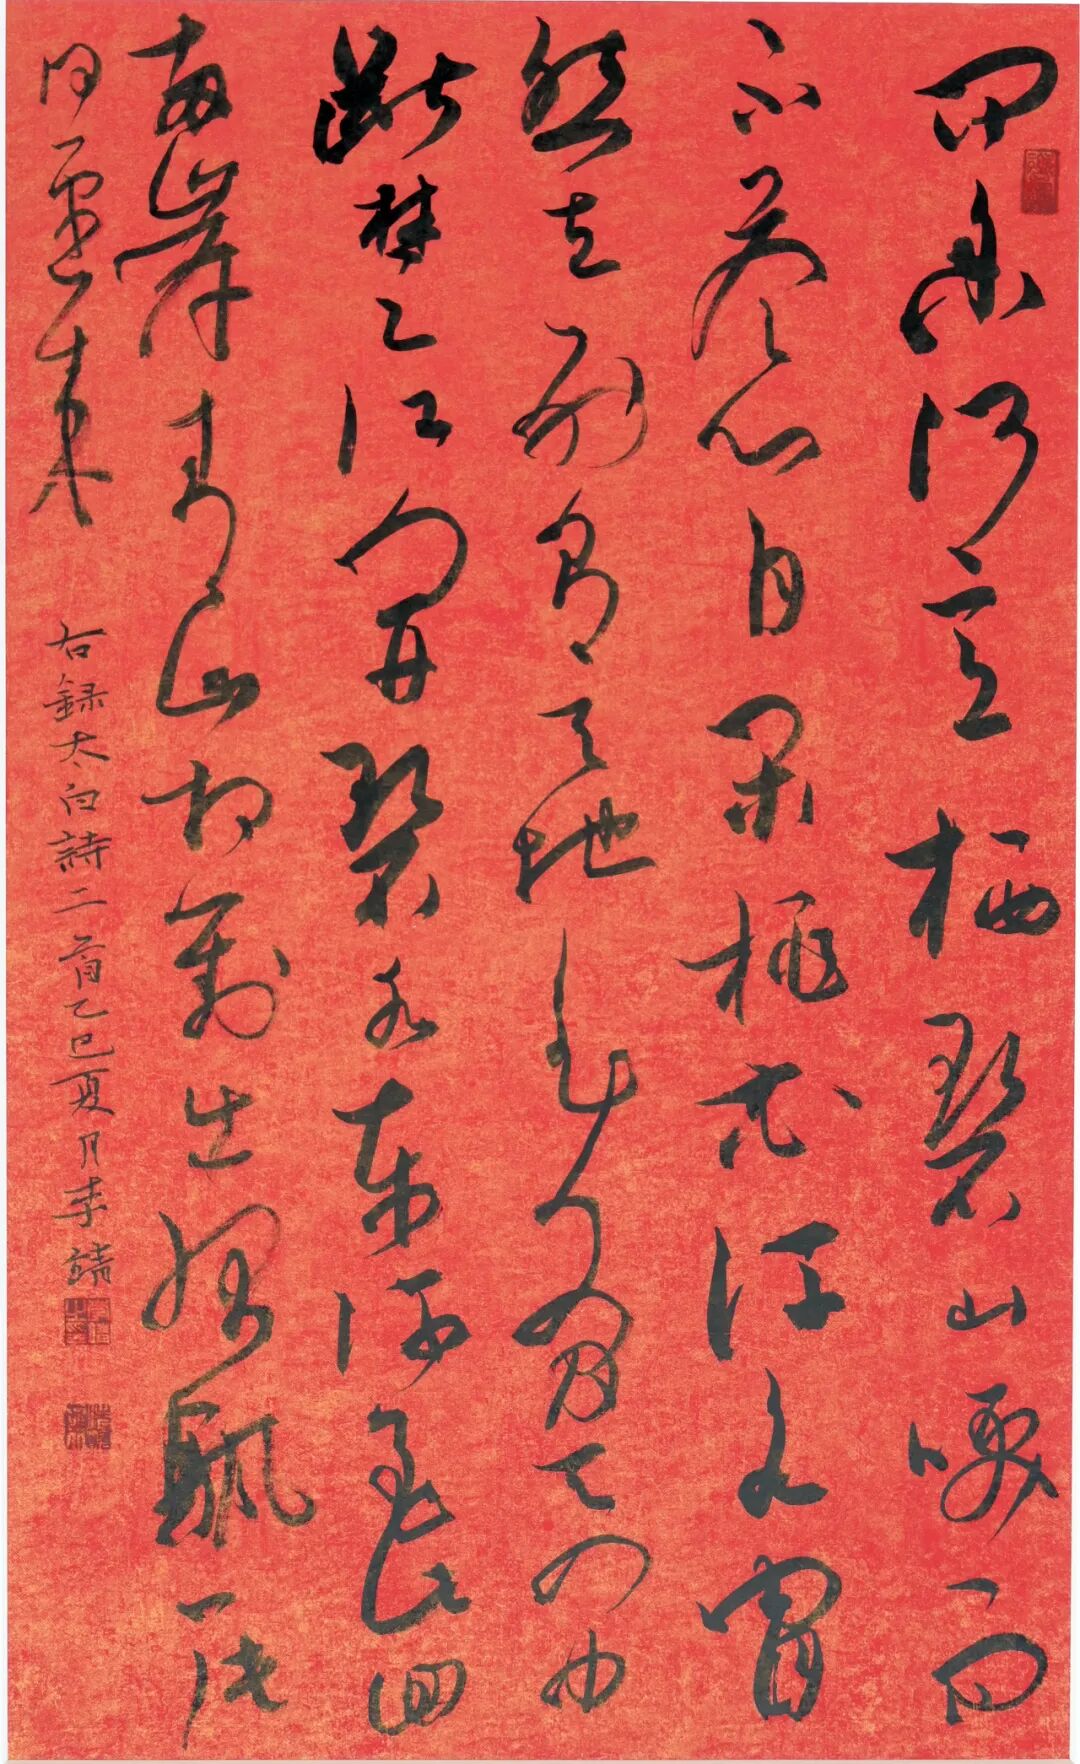 問余何意栖碧山笑而
不答心自閑桃花流水窅
然去別有天地非人間天門中
斷楚江開碧水東流至此回
兩岸青山相對出孤帆一片
日邊来
右録太白詩二首乙巳夏月李靖